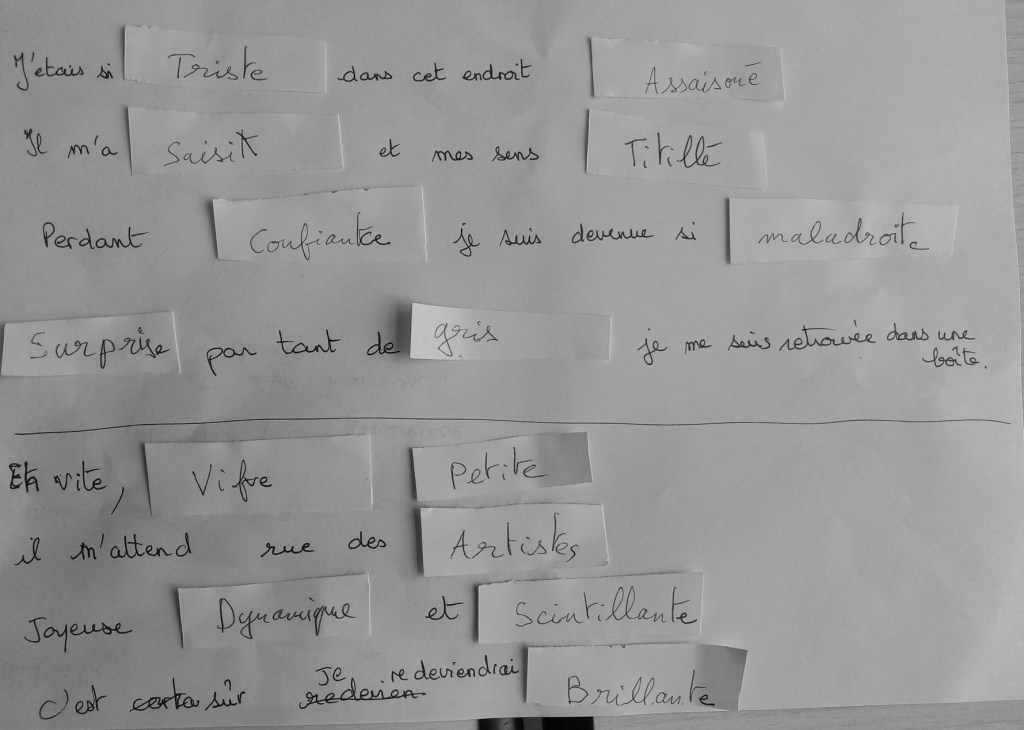 J'étais si Triste dans cet endroit Assaisoné
Il m'a Saisit et mes sens Titillé
Perdant Confiantce je suis devenue si maladroite
Surprise par tant de gris je me suis retrouvée dans une
boîte.
Eh vite, Vifve Petite
il m'attend rue des Artistes
Joyeuse Dynamique et Scintillante
c'est sûr Je redeviendrai Brillante